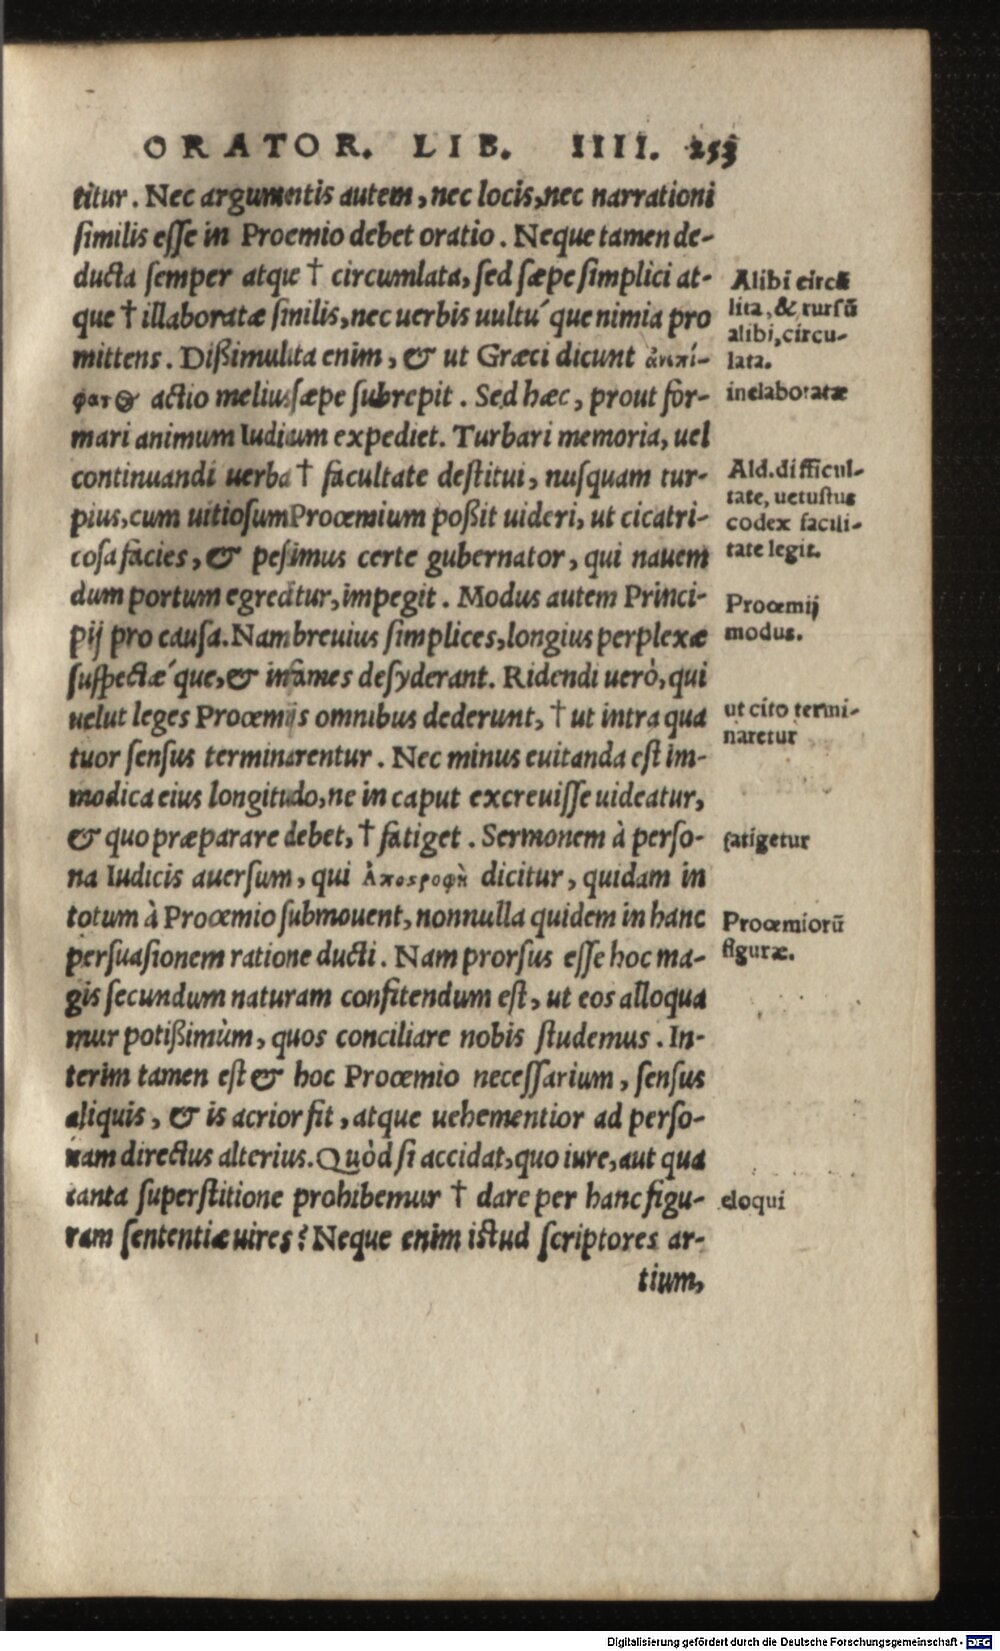 ORATOR. LIB. IIII. 253
titur. Nec argumentis autem, nec locis, nec narrationi
similis esse in Proemio debet oratio. Neque tamen de-
ducta semper atque † circumlata, sed sæpe simplici at-
que † illaboratæ similis, nec uerbis uultu´ que nimia pro
mittens. Dißimulata enim, & ut Græci dicunt ἀνεπί-
φατος actio melius sæpe subrepit. Sed hæc, prout for-
mari animum Iudicum expediet. Turbari memoria, uel
continuandi uerba † facultate destitui, nusquam tur-
pius, cum uitiosum Proœmium poßit uideri, ut cicatri-
cosa facies, & pesimus certe gubernator, qui nauem
dum portum egreditur, impegit. Modus autem Princi-
pij pro causa. Nam breuius simplices, longius perplexæ
suspectæ´ que, & infames desyderant. Ridendi uerò, qui
uelut leges Proœmijs omnibus dederunt, † ut intra qua
tuor sensus terminarentur. Nec minus euitanda est im-
modica eius longitudo, ne in caput excreuisse uideatur,
& quo præparare debet, † fatiget. Sermonem à perso-
na Iudicis auersum, qui ἀποστροφὴ dicitur, quidam in
totum à Proœmio submouent, nonnulla quidem in hanc
persuasionem ratione ducti. Nam prorsus esse hoc ma-
gis secundum naturam confitendum est, ut eos alloqua
mur potißimùm, quos conciliare nobis studemus. In-
terim tamen est & hoc Proœmio necessarium, sensus
aliquis, & is acrior fit, atque uehementior ad perso-
nam directus alterius. Quòd si accidat, quo iure, aut qua
tanta superstitione prohibemur † dare per hanc figu-
ram sententiæ uires? Neque enim istud scriptores ar-
tium,
Alibi circū
lita, & rursū
alibi, circu-
lata.
inelaboratæ
Ald. difficul-
tate, uetustus
codex facili-
tate legit.
Proœmij
modus.
ut cito termi-
naretur
fatigetur
Proœmiorū
figuræ.
eloqui
Digitalisierung gefördert durch die Deutsche Forschungsgemeinschaft - DFG